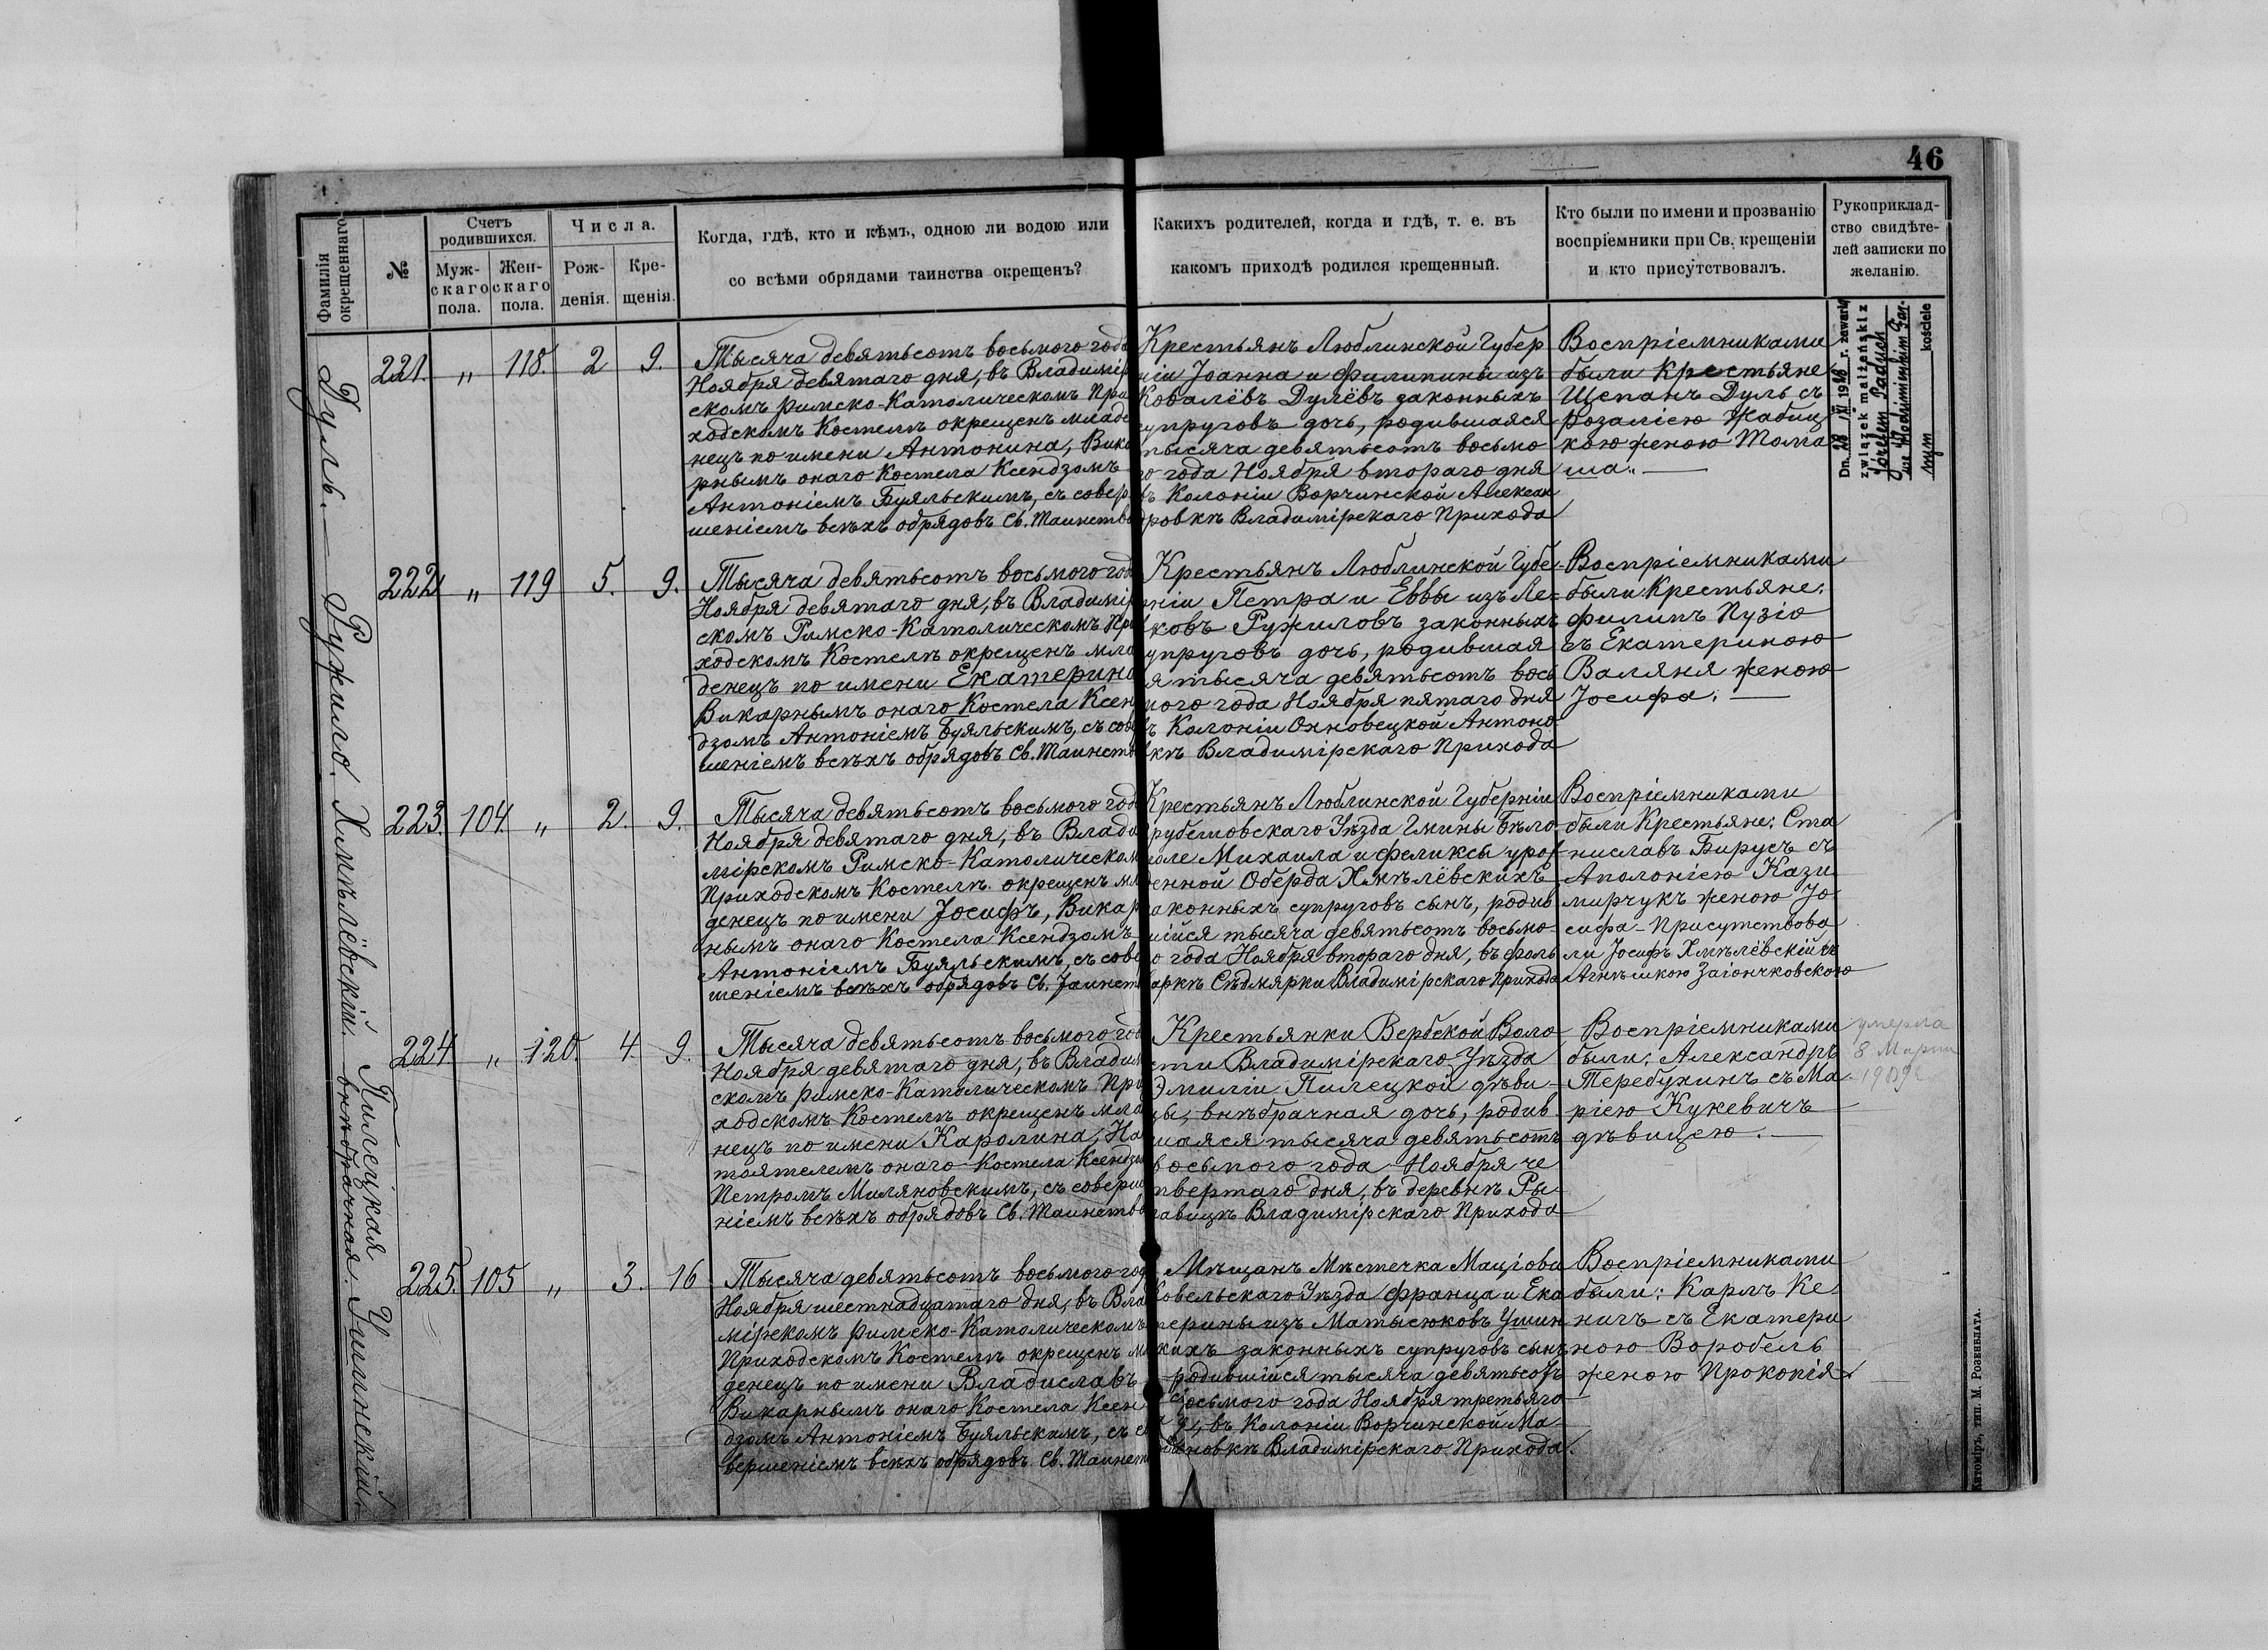 46
Фамилія окрещеннаго
№
Счетъ родившихся.
Мужскаго пола.
Женскаго пола.
Числа.
Рожденія.
Крещенія.
Когда, гдѣ, кто и кѣмъ, одною ли водою или
со всѣми обрядами таинства окрещенъ?
Какихъ родителей, когда и гдѣ, т. е. въ
какомъ приходѣ родился крещенный.
Кто были по имени и прозванію
воспріемники при Св. крещеніи
и кто присутствовалъ.
Рукоприклад-
ство свидѣте-
лей записки по
желанію.
Дуль.
221. " 118. 2 9.
Тысяча девятьсотъ восьмого года
Ноября девятаго дня, въ Владимір
скомъ римско-Католическомъ При
ходскомъ Костелѣ окрещенъ младе
нецъ по имени Антонина, Вика
рнымъ онаго Костела Ксендзомъ
Антоніемъ Буяльскимъ, съ совер
шеніемъ всѣхъ обрядовъ Св. Таинства
Крестьянъ Люблинской Губер
ніи Іоанна и Филипины изъ
Ковалёвъ Дулёвъ законныхъ
супруговъ дочь, родившаяся
тысяча девятьсотъ восьмо
го года Ноября втораго дня
въ Колоніи Ворчинской Алексан
дровкѣ Владимірскаго Прихода
Воспріемниками
были Крестьяне
Щепанъ Дуль съ
Розаліею Жабиц
кою женою Тома
ша.
Dn. 28 XI 1926 r. zawarł
związek małżeński z
Józefem Paduch
we Włodzimirskim Par.
nym kościele
Ружило.
222 " 119 5. 9.
Тысяча девятьсотъ восьмого год
Ноября девятаго дня, въ Владимір
скомъ Римско-Католическомъ При
ходскомъ Костелѣ окрещенъ мла
денецъ по имени Екатерина
Викарнымъ онаго Костела Ксен
дзомъ Антоніемъ Буяльскимъ, съ сове
шеніемъ всѣхъ обрядовъ Св. Таинств
Крестьянъ Люблинской Губе-
рніи Петра и Еввы изъ Ле-
ковъ Ружиловъ законныхъ
супруговъ дочь, родившая
ся тысяча девятьсотъ вось
мого года Ноября пятаго дня
въ Колоніи Охновецкой Антоно
вкѣ Владимірскаго Прихода
Воспріемниками
были Крестьяне:
Филипъ Пузіо
съ Екатериною
Валяня женою
Іосифа.
Хмѣлёвскій.
223. 104. " 2. 9.
Тысяча девятьсотъ восьмого год
Ноября девятаго дня, въ Влади
мірскомъ Римско-Католическом
Приходскомъ Костелѣ окрещен мл
денецъ по имени Іосифъ, Викар
нымъ онаго Костела Ксендзомъ
Антоніемъ Буяльскимъ, съ сове
шеніемъ всѣхъ обрядовъ Св. Таинст
Крестьянъ Люблинской Губерніи
рубешовскаго Уѣзда Гмины Бѣло
поле Михаила и Феликсы урож
денной Оберда Хмѣлёвскихъ
законныхъ супруговъ сынъ, родив
шійся тысяча девятьсотъ восьмо
го года Ноября втораго дня, въ фоль
варкѣ Сѣдмярки Владимірскаго Прихода
Воспріемниками
были Крестьяне: Ста
ниславъ Бирусъ съ
Аполоніею Кази
мирчукъ женою Іо
сифа - Присутствова
ли Іосифъ Хмѣлёвскій съ
Агнѣшкою Заіончковскою
Пилецкая внѣбрачная.
224 " 120. 4. 9.
Тысяча девятьсотъ восьмого год
Ноября девятаго дня, въ Владим
скомъ римско-Католическомъ При
ходскомъ Костелѣ окрещенъ мла
нецъ по имени Каролина, На
тоятелемъ онаго Костела Ксендзом
Петромъ Миляновскимъ, съ соверш
ніемъ всѣхъ обрядовъ Св. Таинства
Крестьянки Вербской Воло
сти Владимірскаго Уѣзда
Эмиліи Пилецкой дѣви-
цы, внѣбрачная дочь, родив
шаяся тысяча девятьсотъ
восьмого года Ноября че
твертаго дня, въ деревнѣ Ры
навицѣ Владимірскаго Прихода
Воспріемниками
были: Александръ
Теребухинъ съ Ма
ріею Кужевичъ
дѣвицею.
умерла
8 Марта
1909г
Ушинскій.
225. 105 " 3. 16
Тысяча девятьсотъ восьмого год
Ноября шестнадцатаго дня, въ Вла
мірскомъ римско-Католическомъ
Приходскомъ Костелѣ окрещенъ мл
денецъ по имени Владиславъ
Викарнымъ онаго Костела Ксен
дзомъ Антоніемъ Буяльскимъ, съ со
вершеніемъ всѣхъ обрядовъ Св. Таинст
Мѣщанъ Мѣстечка Маціова
Ковельскаго Уѣзда Франца и Ека
терины изъ Матысюковъ Ушин
скихъ законныхъ супруговъ сынъ
родившійся тысяча девятьсотъ
восьмого года Ноября третьяго
дня, въ Колоніи Ворчинской Ма-
новкѣ Владимірскаго Прихода.
Воспріемниками
были: Карлъ Ке
ничъ съ Екатери
ною Воробель
женою Прокопія
Житоміръ, тип. М. Розенблата.